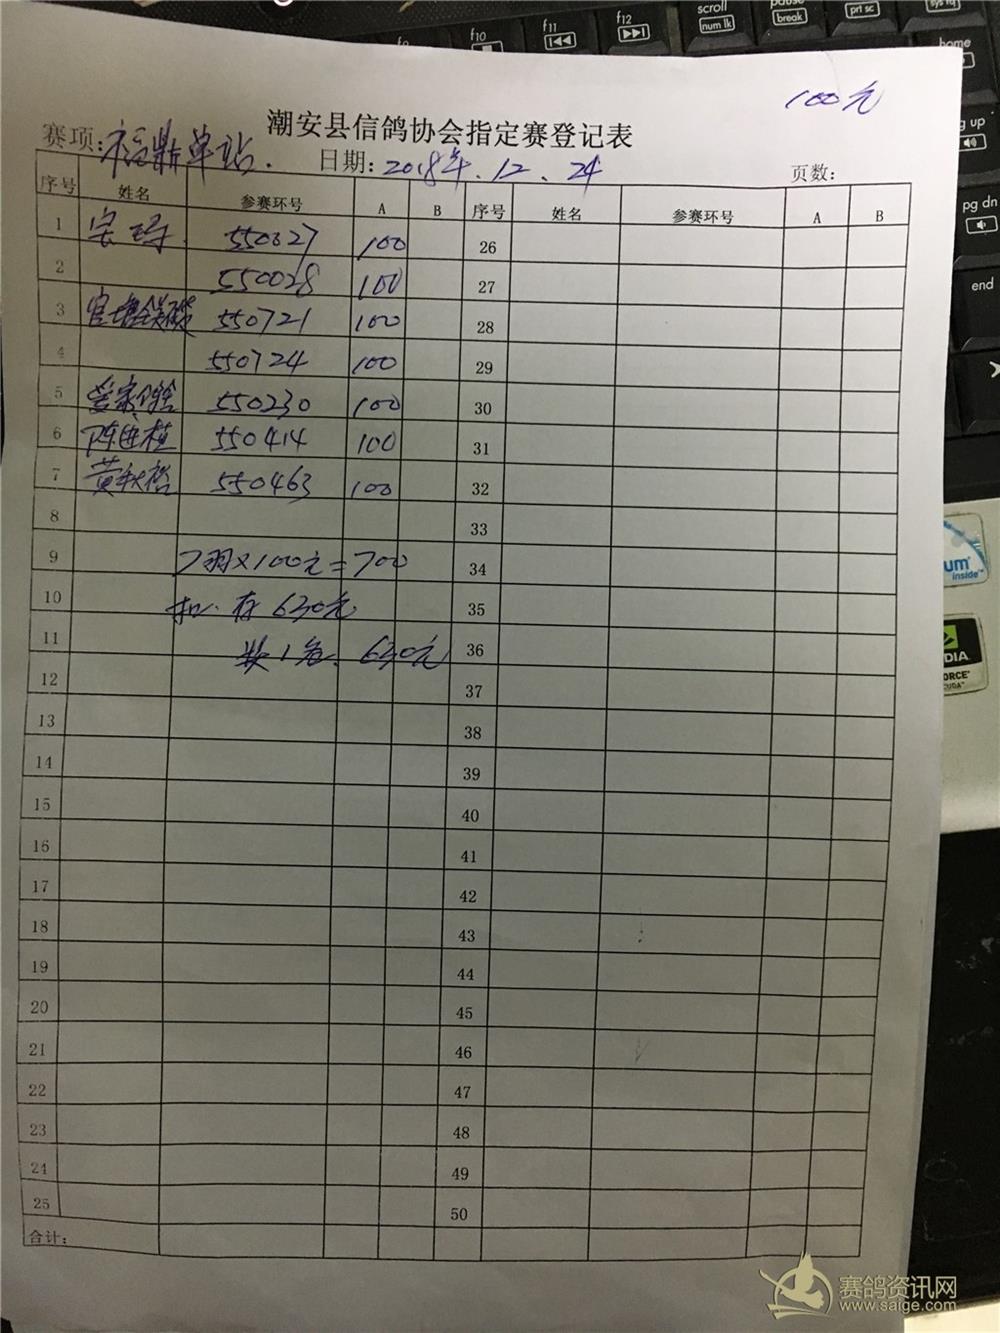 scroll
num lk
pause
break
prt sc
sys rq
f9
f10
f11
f12
home
pg up
pg dn
end
100元
潮安县信鸽协会指定赛登记表
赛项:福鼎单站. 日期:2018年.12.24 页数:
序号 姓名 参赛环号 A B 序号 姓名 参赛环号 A B
1 550327 100 26
2 550028 100 27
3 550721 100 28
4 550724 100 29
5 550230 100 30
6 陈进植 550414 100 31
7 黄秋裕 550463 100 32
8 33
9 7羽×100元=700 34
10 扣.存630元 35
11 奖1名.630元 36
12 37
13 38
14 39
15 40
16 41
17 42
18 43
19 44
20 45
21 46
22 47
23 48
24 49
25 50
合计:
inside™
赛鸽资讯网
www.saige.com